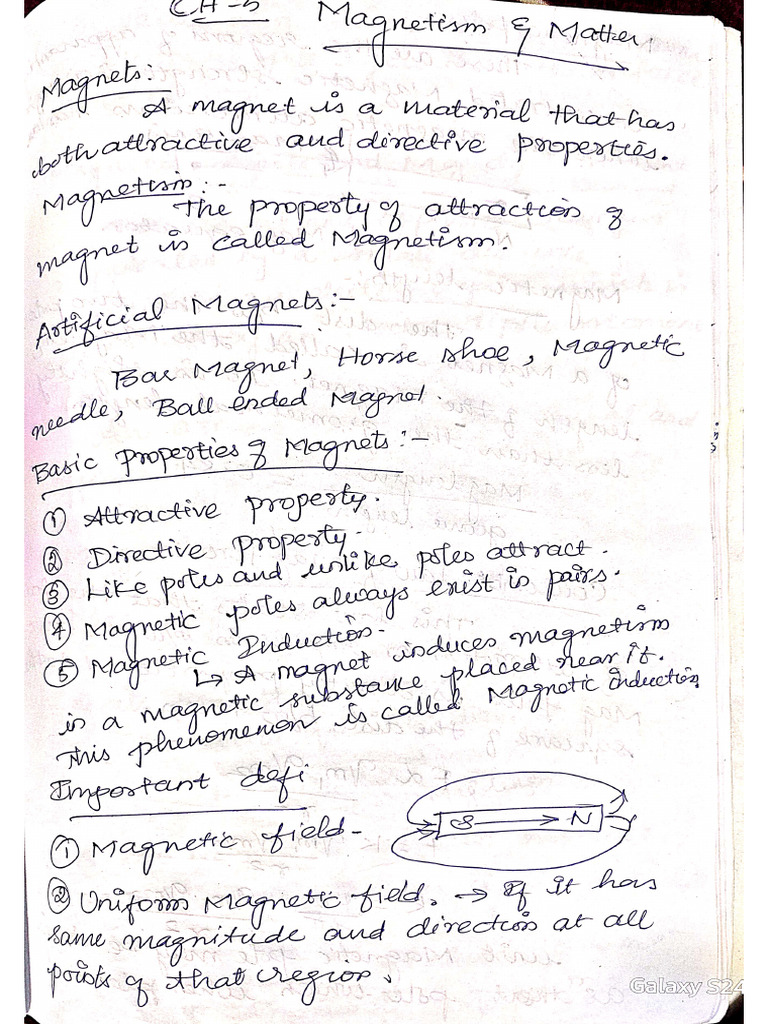 CH-5 Magnetism & Matter
Magnets:-
A magnet is a material that has
both attractive and directive properties.
Magnetism:-
The property of attraction of
magnet is called Magnetism.
Artificial Magnets:-
Bar Magnet, Horse shoe, Magnetic
needle, Ball ended Magnet.
Basic Properties of Magnets:-
① Attractive property.
② Directive property.
③ Like poles and unlike poles attract.
④ Magnetic poles always exist in pairs.
⑤ Magnetic Induction.
↳ A magnet induces magnetism
in a magnetic substance placed near it.
This phenomenon is called Magnetic induction.
Important defi
① Magnetic field-
S N
② Uniform Magnetic field. → If it has
same magnitude and direction at all
points of that region.
Galaxy S24